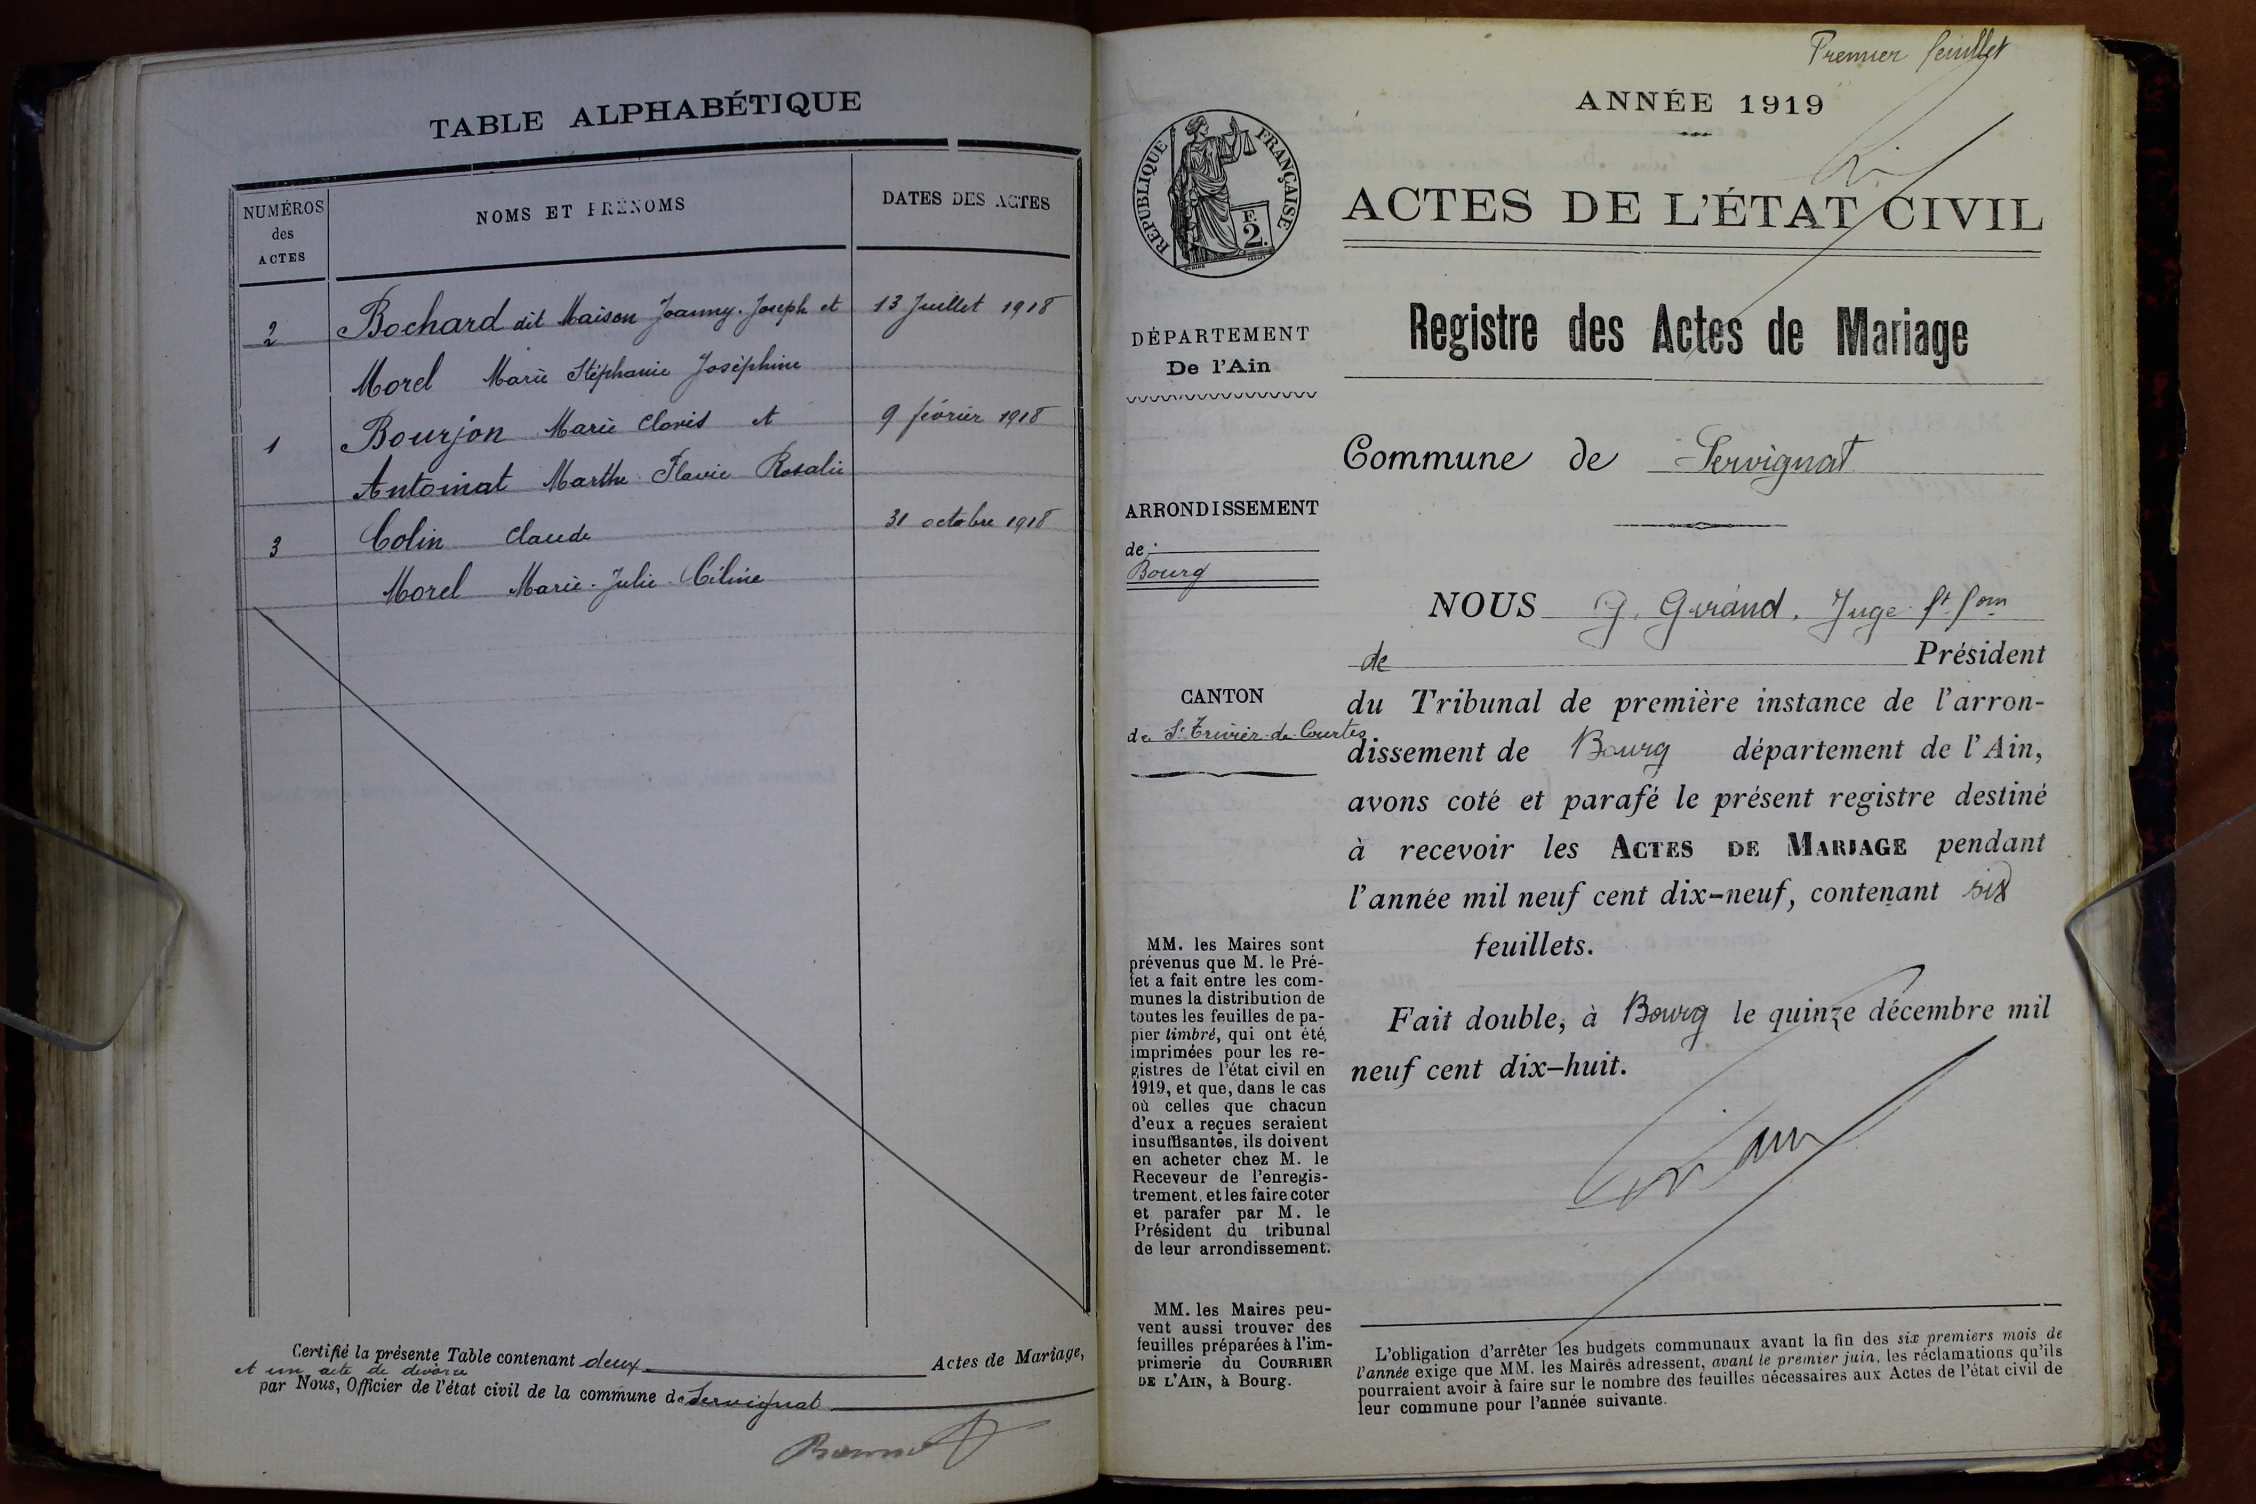 TABLE ALPHABÉTIQUE
NUMÉROS des ACTES
NOMS ET PRÉNOMS
DATES DES ACTES
2 Bochard dit Maison Joanny-Joseph et 13 Juillet 1918
Morel Marie Stéphanie Joséphine
1 Bourjon Marie Clovis et 9 février 1918
Antoinat Marthe Flavie Rosalie
3 Colin Claude 31 octobre 1918
Morel Marie-Julie-Céline
Certifié la présente Table contenant deux Actes de Mariage,
et un acte de divorce
par Nous, Officier de l'état civil de la commune de Servignat
Premier feuillet
ANNÉE 1919
RÉPUBLIQUE FRANÇAISE
F.
2.
ACTES DE L'ÉTAT CIVIL
Registre des Actes de Mariage
DÉPARTEMENT
De l'Ain
Commune de Servignat
ARRONDISSEMENT
de
Bourg
CANTON
de St Trivier-de-Courtes
NOUS G. Girand, Juge ft fom
de Président
du Tribunal de première instance de l'arron-
dissement de Bourg département de l'Ain,
avons coté et parafé le présent registre destiné
à recevoir les ACTES DE MARIAGE pendant
l'année mil neuf cent dix-neuf, contenant six
feuillets.
Fait double, à Bourg le quinze décembre mil
neuf cent dix-huit.
MM. les Maires sont
prévenus que M. le Pré-
fet a fait entre les com-
munes la distribution de
toutes les feuilles de pa-
pier timbré, qui ont été
imprimées pour les re-
gistres de l'état civil en
1919, et que, dans le cas
où celles que chacun
d'eux a reçues seraient
insuffisantes, ils doivent
en acheter chez M. le
Receveur de l'enregis-
trement, et les faire coter
et parafer par M. le
Président du tribunal
de leur arrondissement.
MM. les Maires peu-
vent aussi trouver des
feuilles préparées à l'im-
primerie du COURRIER
DE L'AIN, à Bourg.
L'obligation d'arrêter les budgets communaux avant la fin des six premiers mois de
l'année exige que MM. les Maires adressent, avant le premier juin, les réclamations qu'ils
pourraient avoir à faire sur le nombre des feuilles nécessaires aux Actes de l'état civil de
leur commune pour l'année suivante.